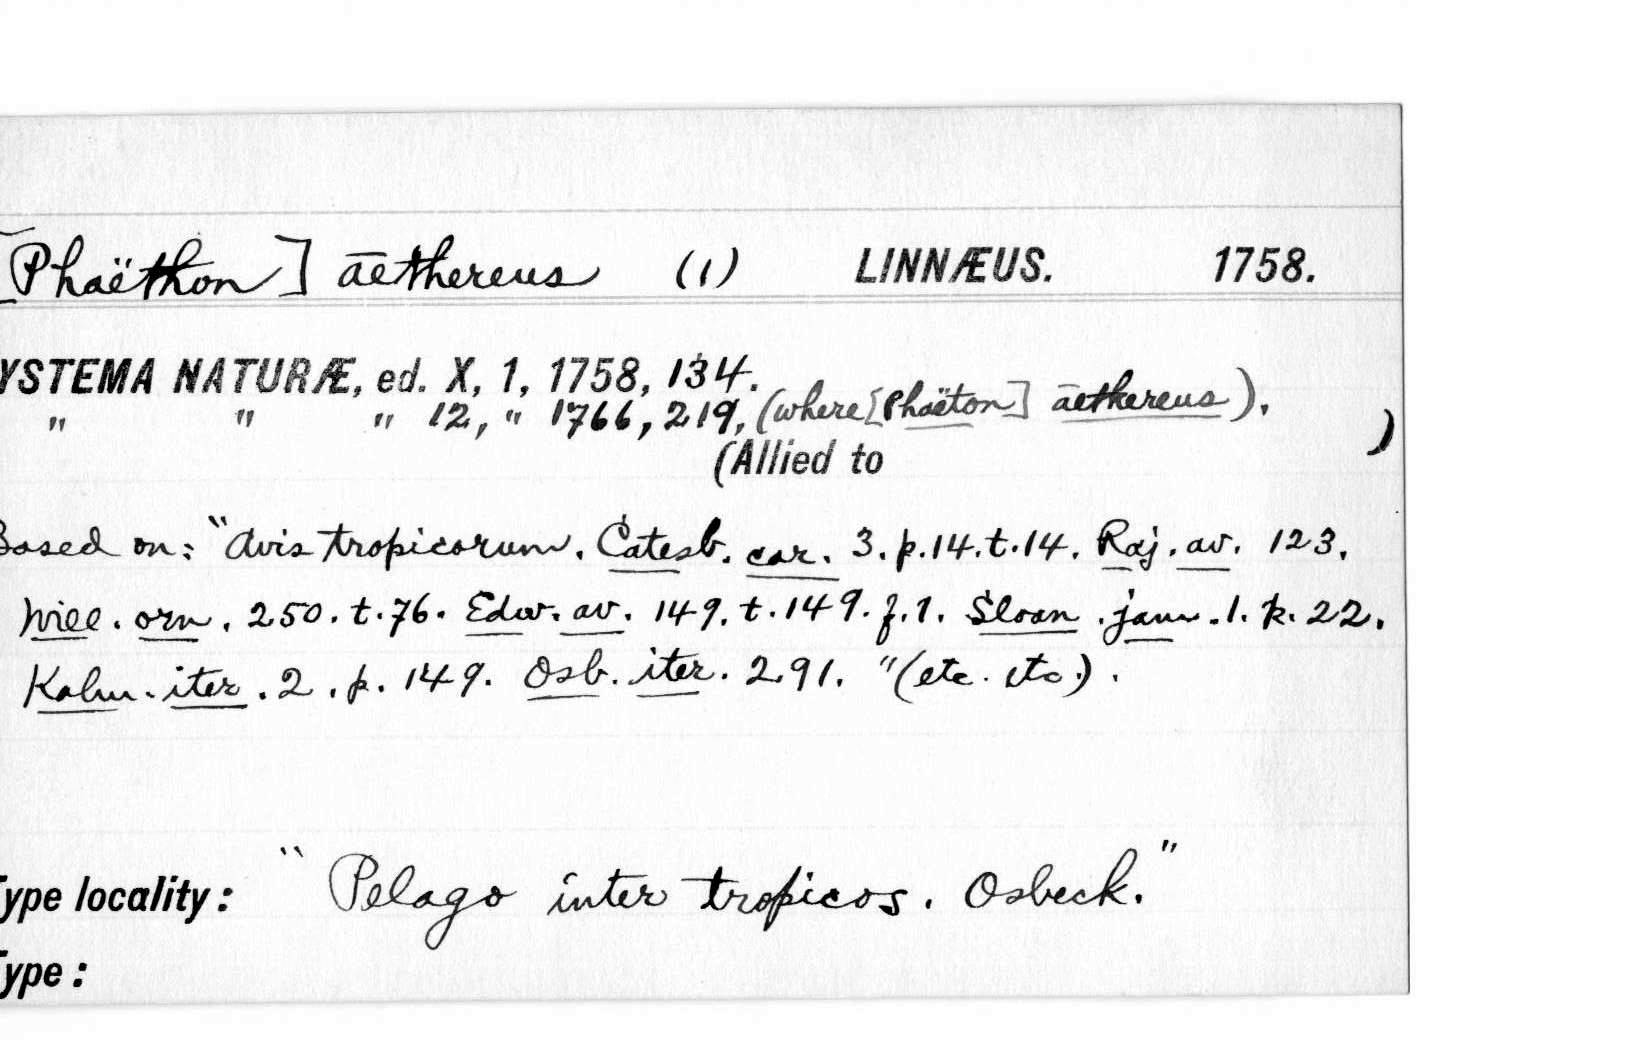 [Phaëthon] āethereus (1) LINNÆUS. 1758.
YSTEMA NATURÆ, ed. X, 1, 1758, 134.
" " " 12, " 1766, 219, (where [Phaëton] āethereus).
(Allied to )
Based on: "Avis tropicorum. Catesb. car. 3. p. 14. t. 14. Raj. av. 123.
Will. orn. 250. t. 76. Edw. av. 149. t. 149. f. 1. Sloan. jam. 1. p. 22.
Kalm. iter. 2. p. 149. Osb. iter. 291. "(etc. etc.).
Type locality: "Pelago inter tropicos. Osbeck."
Type: